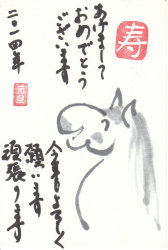 寿
あけまして
おめでとう
ございます
二〇一四年
元旦
今年もよろしく
願います
頑張ります